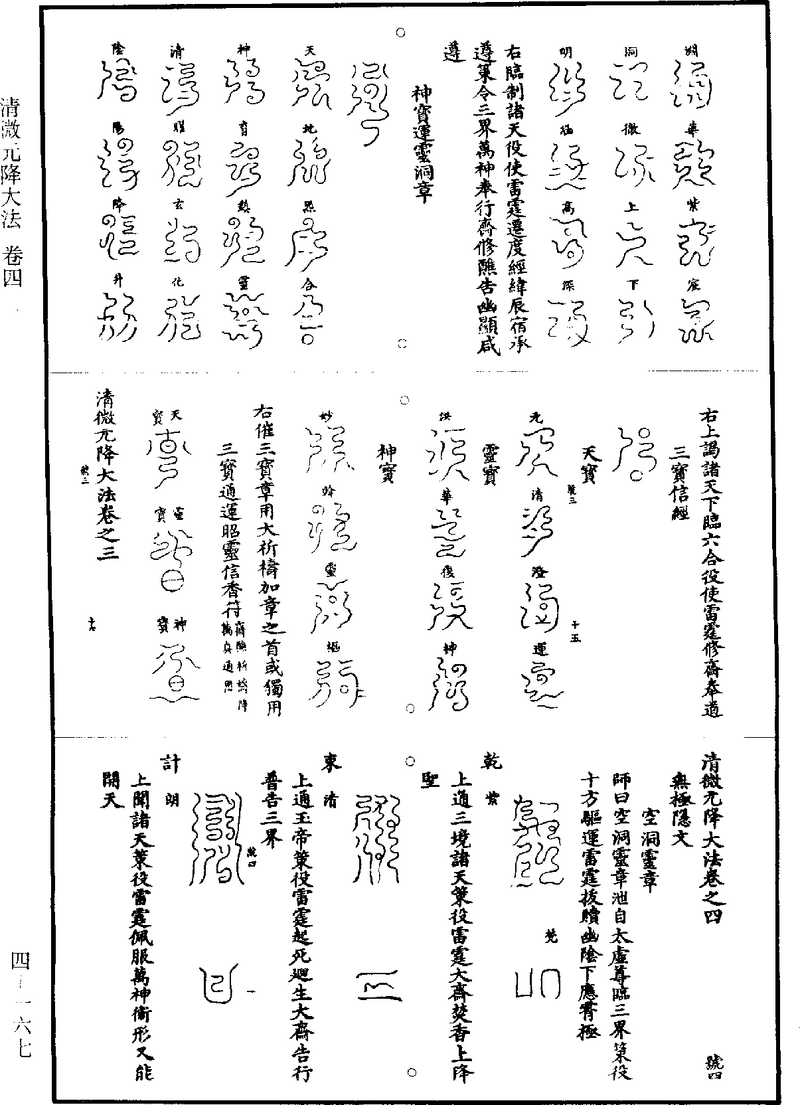 朗 華 紫 宸
洞 微 上 下
明 極 高 深
右臨制諸天役使雷霆遷度經緯辰宿承
遵策令三界萬神奉行齋修醮告幽顯咸
遵
神寶運靈洞章
天 地 炁 合
神 育 鎮 靈
清 耀 玄 化
陰 陽 降 升
右上謁諸天下臨六合役使雷霆修齋奉道
三寶信經
天寶
元 清 澄 運
號三 十五
靈寶
洪 華 復 神
神寶
妙 幹 靈 樞
右催三寶章用大祈禱加章之首或獨用
三寶通運昭靈信香符齋醮祈禱降萬真通思
天寶 靈寶 神寶
清微元降大法卷之三
號三
清微元降大法卷之四 號四
無極隱文
空洞靈章
師曰空洞靈章池自太虛尊臨三界策役
十方驅運雷霆拔贖幽陰下應霄極
乾 紫 梵
上通三境諸天策役雷霆大齋焚香上降
聖
東 清
上通玉帝策役雷霆起死廻生大齋告行
普告三界
號四 一
計 朗
上聞諸天策役雷霆佩服萬神衛形又能
開天
清微元降大法 卷四
四一六七